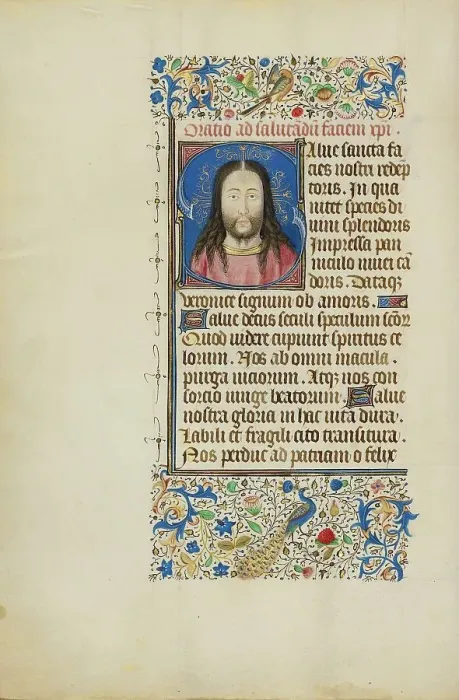 Oratio ad salutādū faciem xpi .
Salue sancta fa
cies nostri redēp
toris . In qua
nitet species di
uini splendoris
Impressa pan
niculo niuei cā
doris . Dataqꝫ
veronice signum ob amoris .
Salue decus seculi speculum scōꝝ
Quod videre cupiunt spiritus ce
lorum . Nos ab omni macula .
purga viciorum . Atqꝫ nos con
sorcio iunge beatorum . Salue
nostra gloria in hac vita dura .
Labili et fragili cito transitura .
Nos perduc ad patriam o felix